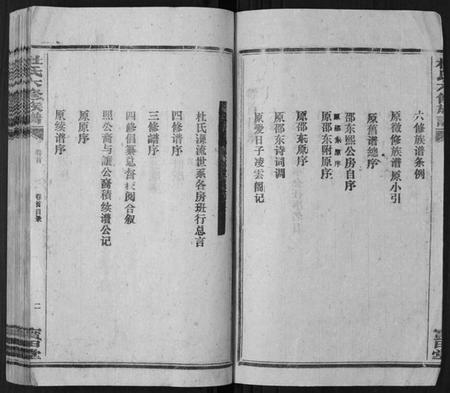 六修族谱条例
原徵修族谱原小引
原旧谱总序
邵东熙公房自序
原邵东原序
原邵东附原序
原邵东原序
原邵东诗词调
原爱日子凌云阁记
杜氏源流世系各房班行总言
四修谱序
三修谱序
四修倡纂总督校阅合叙
熙公裔与让公裔积续谱公记
原原序
原续谱序
杜氏六修族谱
卷首
卷首目录
二